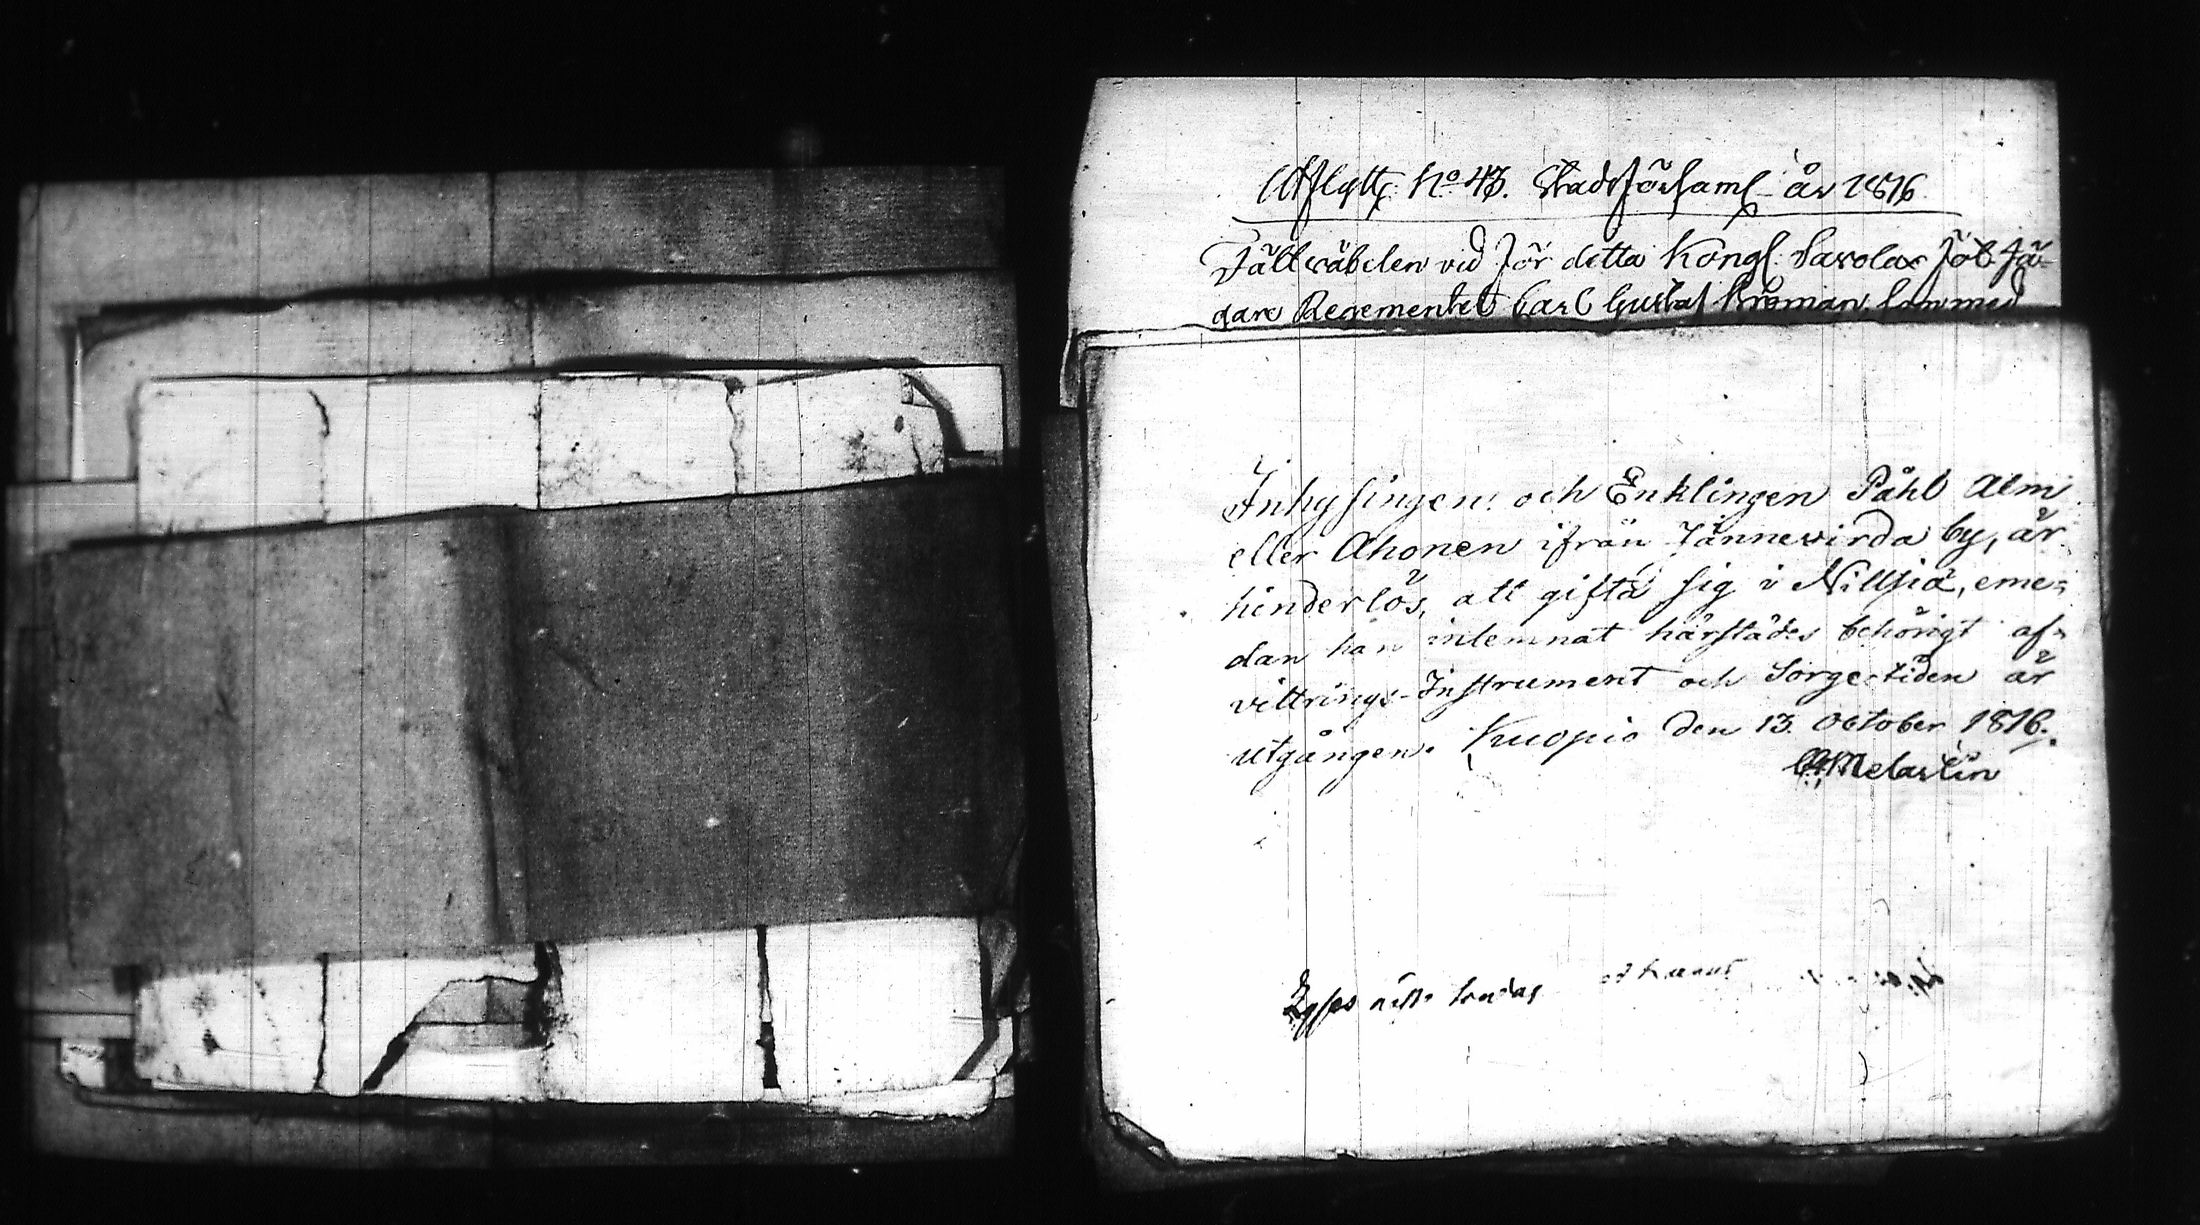 Utflytt: No 43. Stadsförsaml år 1816
Fältwäbelen vid för detta Kongl. Savolax Fot Jä-
gare Regementet Carl Gustaf Broman, som med
Inhysingen och Enklingen Påhl Alm
eller Ahonen ifrån Jännevirda by, är
hinderlös, att gifta sig i Nillsiä, eme=
dan han inlemnat härstädes behörigt af=
vittrings-Instrument och Sorgetiden är
utgången. Kuopio den 13 October 1816.
Melartin